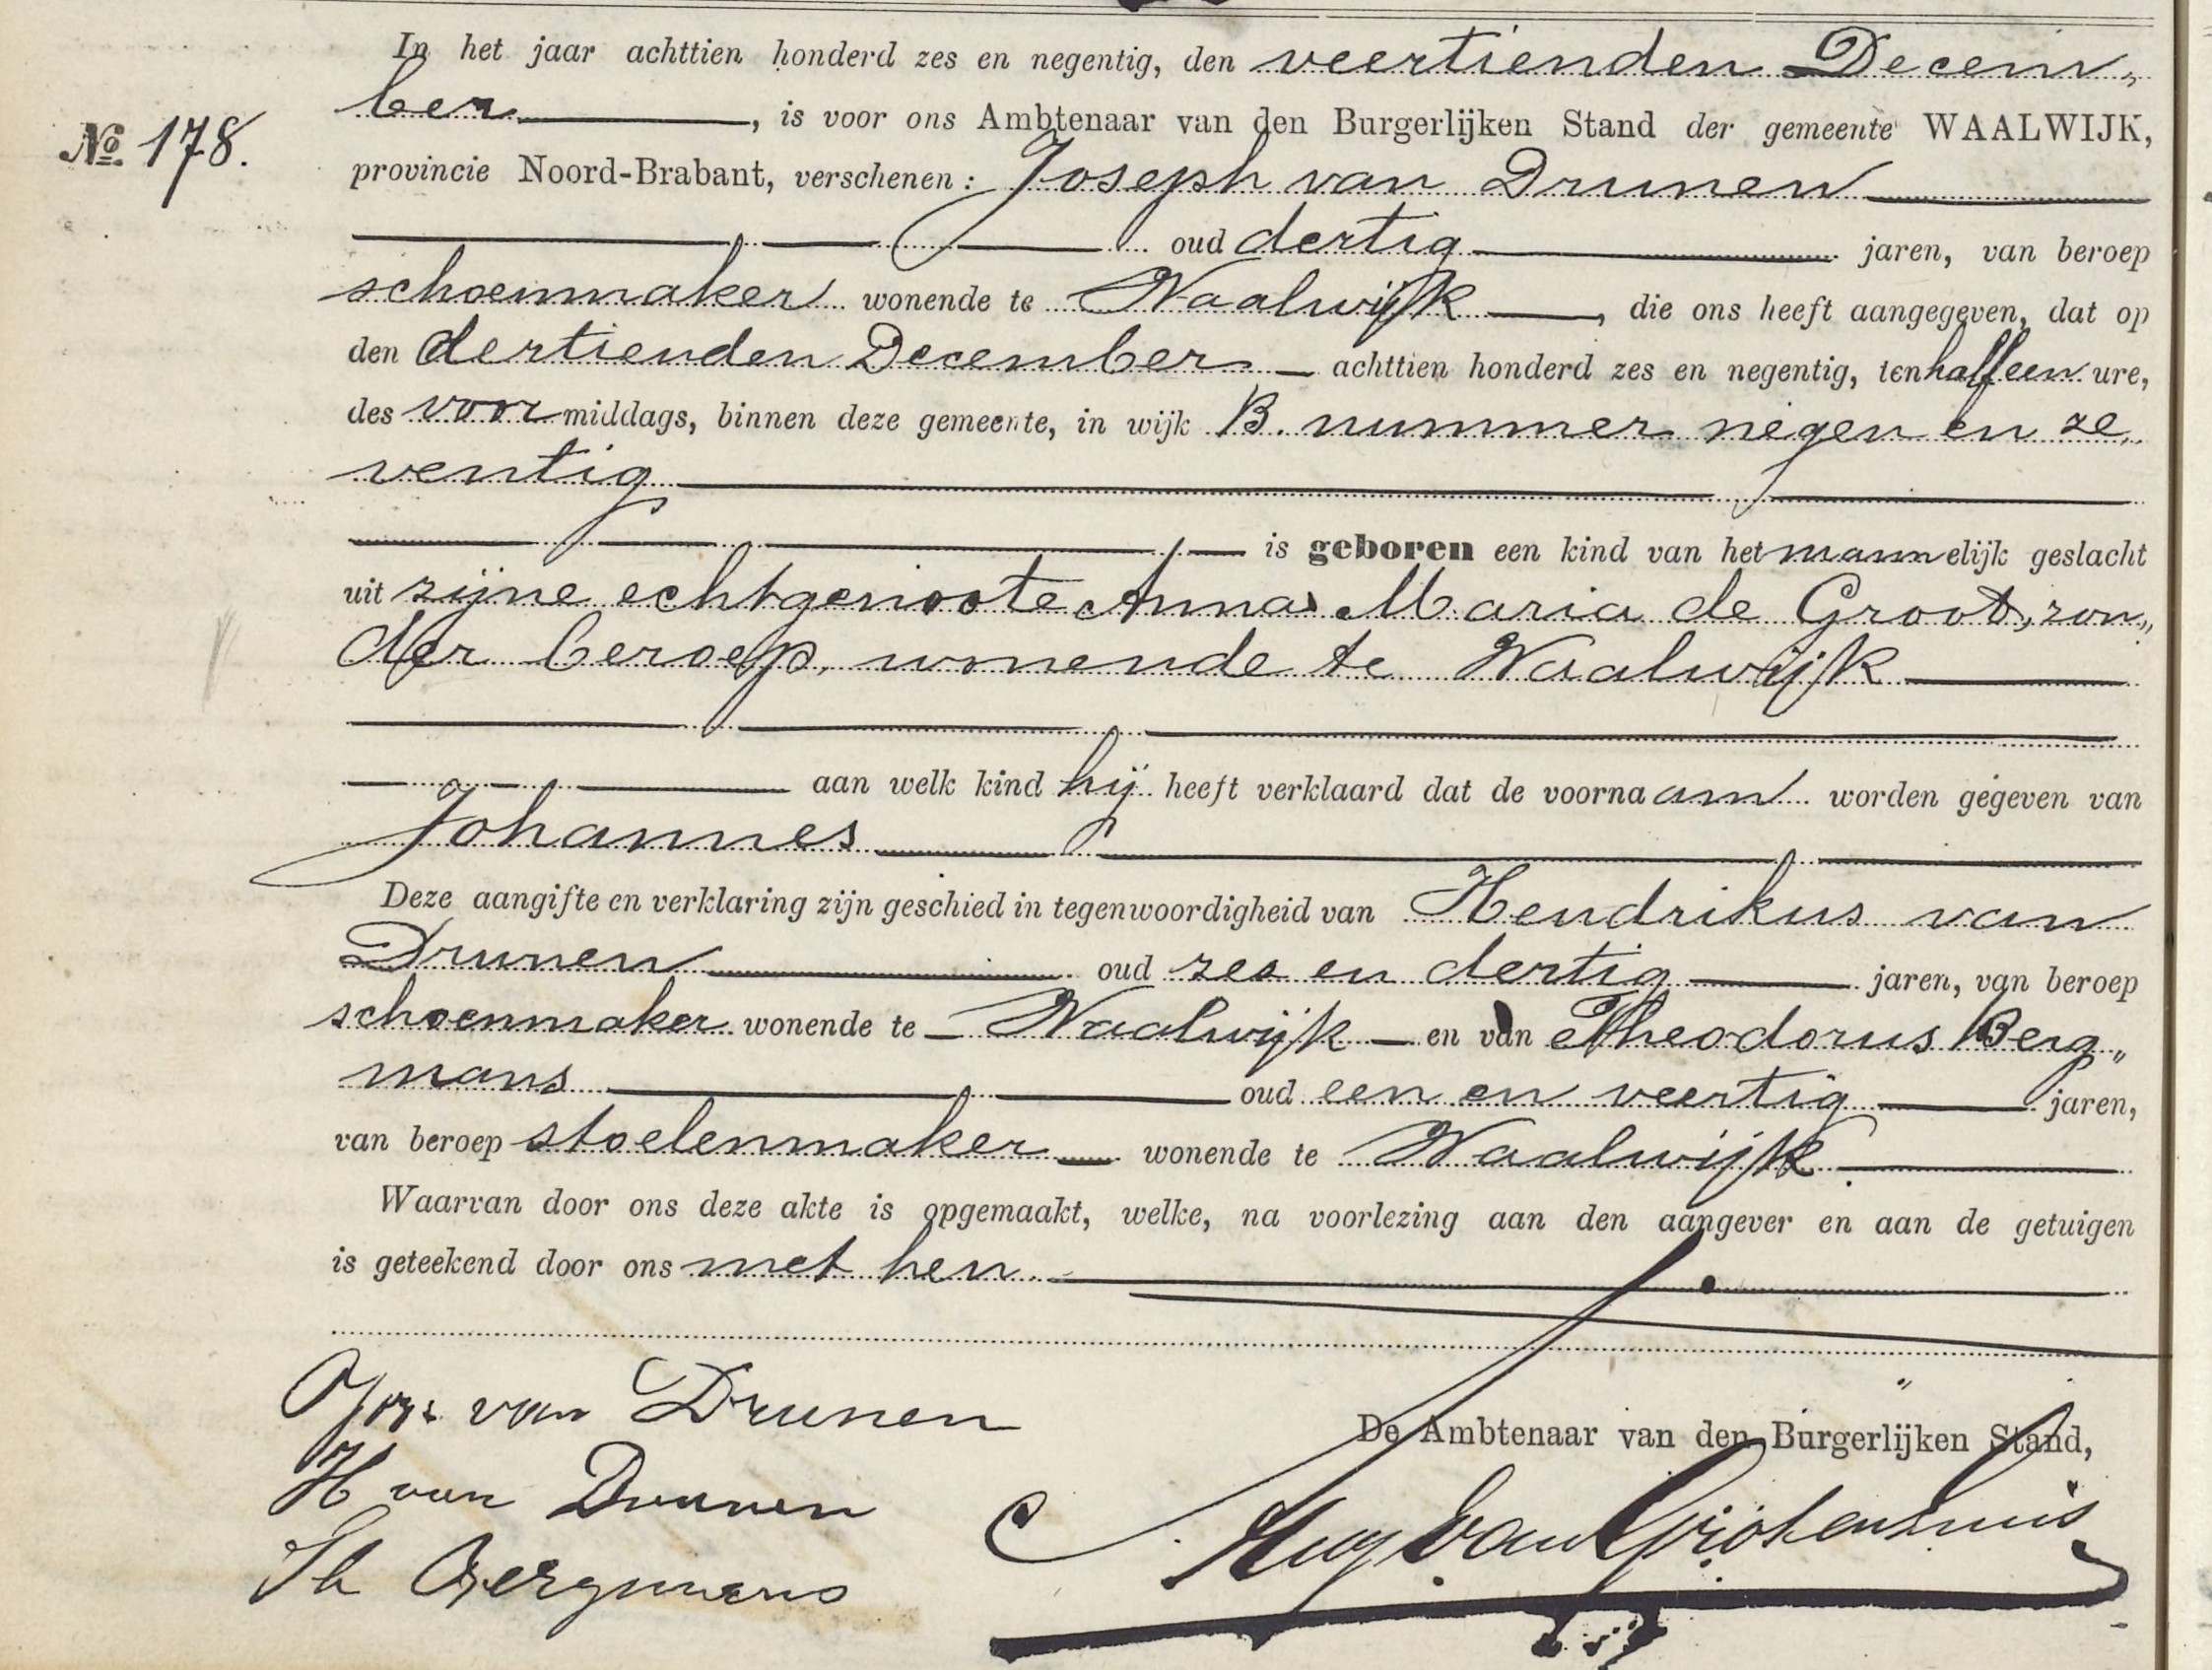 In het jaar achttien honderd zes en negentig, den veertienden Decem„
ber, is voor ons Ambtenaar van den Burgerlijken Stand der gemeente WAALWIJK,
No 178.
provincie Noord-Brabant, verschenen: Joseph van Drunen
oud dertig jaren, van beroep
schoenmaker wonende te Waalwijk, die ons heeft aangegeven, dat op
den dertienden December achttien honderd zes en negentig, ten half een ure,
des voormiddags, binnen deze gemeente, in wijk B. nummer negen en ze„
ventig
is geboren een kind van het mannelijk geslacht
uit zijne echtgenoote Anna Maria de Groot, zon„
der beroep, wonende te Waalwijk
aan welk kind hij heeft verklaard dat de voornaam worden gegeven van
Johannes
Deze aangifte en verklaring zijn geschied in tegenwoordigheid van Hendrikus van
Drunen oud zes en dertig jaren, van beroep
schoenmaker wonende te Waalwijk en van Theodorus Berg„
mans oud een en veertig jaren,
van beroep stoelenmaker wonende te Waalwijk
Waarvan door ons deze akte is opgemaakt, welke, na voorlezing aan den aangever en aan de getuigen
is geteekend door ons met hen.
van Drunen
De Ambtenaar van den Burgerlijken Stand,
H van Drunen
Th Bergmans